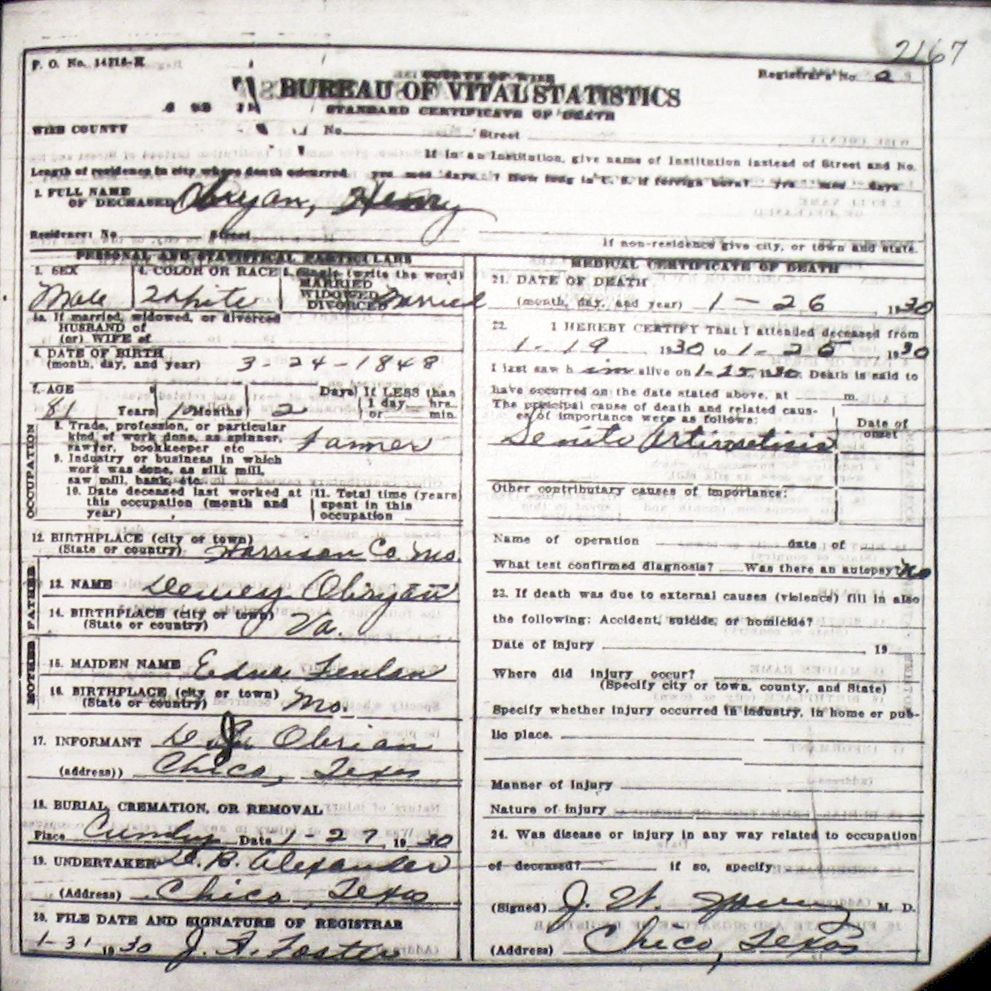 2167
F. O. No. 14218-K
COUNTY OF WISE
Registrar's No. 2
BUREAU OF VITAL STATISTICS
STANDARD CERTIFICATE OF DEATH
WISE COUNTY No. Street
If in an Institution, give name of Institution instead of Street and No.
Length of residence in city where death occurred yrs mos days ? How long in U. S. if foreign born? yrs mos days
2. FULL NAME
OF DECEASED Obryan, Henry
Residence: No Street
If non-residence give city, or town and state.
PERSONAL AND STATISTICAL PARTICULARS
3. SEX Male
4. COLOR OR RACE White
5. Single (write the word)
MARRIED
WIDOWED
DIVORCED Married
5a. If married, widowed, or divorced
HUSBAND of
(or) WIFE of
6. DATE OF BIRTH
(month, day, and year) 3-24-1848
7. AGE 81 Years 10 Months 2 Days
If LESS than
1 day, hrs.
or min.
OCCUPATION
8. Trade, profession, or particular
kind of work done, as spinner,
sawyer, bookkeeper etc Farmer
9. Industry or business in which
work was done, as silk mill,
saw mill, bank, etc.
10. Date deceased last worked at
this occupation (month and
year)
11. Total time (years)
spent in this
occupation
12. BIRTHPLACE (city or town)
(State or country) Harrison Co. Mo.
FATHER
13. NAME Dewey Obryan
14. BIRTHPLACE (city or town)
(State or country) Va.
MOTHER
15. MAIDEN NAME Edna
16. BIRTHPLACE (city or town)
(State or country) Mo.
17. INFORMANT Obrian
(address)) Chico, Texas
18. BURIAL, CREMATION, OR REMOVAL
Place Date 1-27 1930
19. UNDERTAKER B. Alexander
(Address) Chico, Texas
20. FILE DATE AND SIGNATURE OF REGISTRAR
1-31 1930 J. F. Foster
MEDICAL CERTIFICATE OF DEATH
21. DATE OF DEATH
(month, day, and year) 1-26 1930
22. I HEREBY CERTIFY That I attended deceased from
1-19 1930 to 1-25 1930
I last saw h im alive on 1-25 1930. Death is said to
have occurred on the date stated above, at m.
The principal cause of death and related caus-
es of importance were as follows:
Date of
onset
Other contributary causes of importance:
Name of operation date of
What test confirmed diagnosis? Was there an autopsy? no
23. If death was due to external causes (violence) fill in also
the following: Accident, suicide, or homicide?
Date of injury 19
Where did injury occur?
(Specify city or town, county, and State)
Specify whether injury occurred in industry, in home or pub-
lic place.
Manner of injury
Nature of injury
24. Was disease or injury in any way related to occupation
of deceased? if so, specify
(Signed) J. W. M. D.
(Address) Chico, Texas